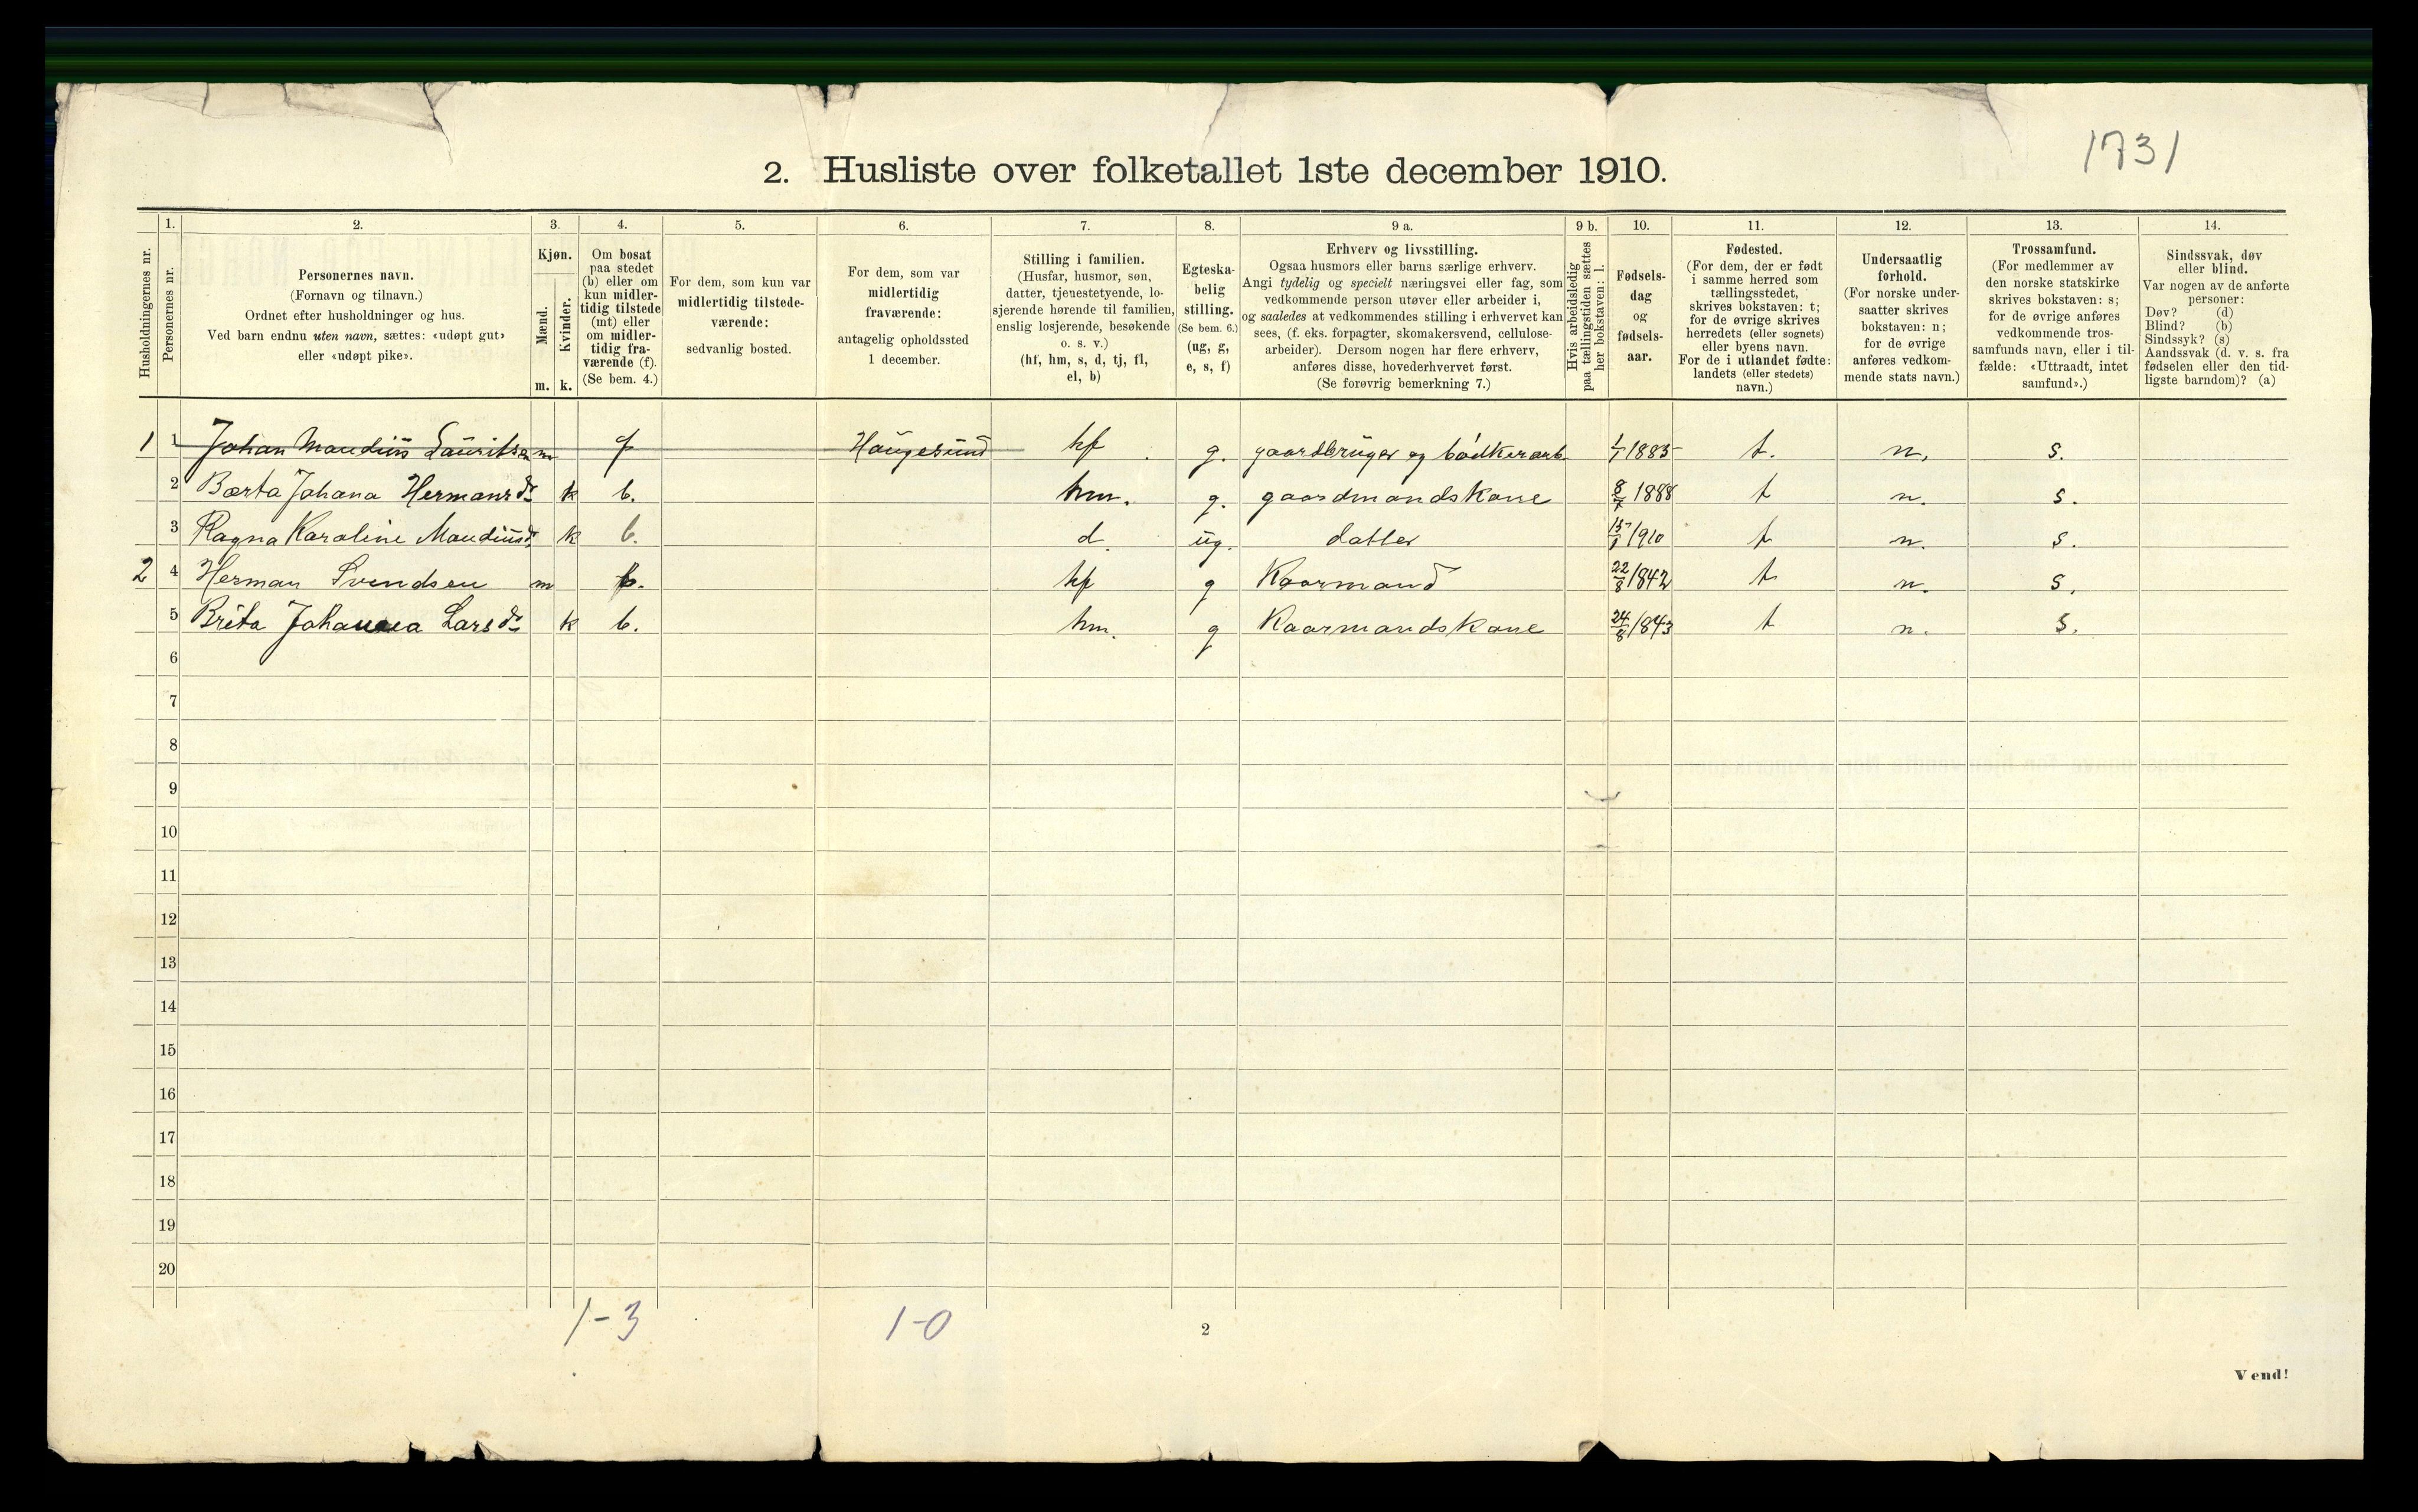 1731
2. Husliste over folketallet 1ste december 1910.
Husholdningernes nr.
1.
Personernes nr.
2.
Personernes navn.
(Fornavn og tilnavn.)
Ordnet efter husholdninger og hus.
Ved barn endnu uten navn, sættes: «udøpt gut»
eller «udøpt pike».
3.
Kjøn.
Mænd.
Kvinder.
m. k.
4.
Om bosat
paa stedet
(b) eller om
kun midler-
tidig tilstede
(mt) eller
om midler-
tidig fra-
værende (f).
(Se bem. 4.)
5.
For dem, som kun var
midlertidig tilstede-
værende:
sedvanlig bosted.
6.
For dem, som var
midlertidig
fraværende:
antagelig opholdssted
1 december.
7.
Stilling i familien.
(Husfar, husmor, søn,
datter, tjenestetyende, lo-
sjerende hørende til familien,
enslig losjerende, besøkende
o. s. v.)
(hf, hm, s, d, tj, fl,
el, b)
8.
Egteska-
belig
stilling.
(Se bem. 6.)
(ug, g,
e, s, f)
9 a.
Erhverv og livsstilling.
Ogsaa husmors eller barns særlige erhverv.
Angi tydelig og specielt næringsvei eller fag, som
vedkommende person utøver eller arbeider i,
og saaledes at vedkommendes stilling i erhvervet kan
sees, (f. eks. forpagter, skomakersvend, cellulose-
arbeider). Dersom nogen har flere erhverv,
anføres disse, hovederhvervet først.
(Se forøvrig bemerkning 7.)
9 b.
Hvis arbeidsledig
paa tællingstiden sættes
her bokstaven: l.
10.
Fødsels-
dag
og
fødsels-
aar.
11.
Fødested.
(For dem, der er født
i samme herred som
tællingsstedet,
skrives bokstaven: t;
for de øvrige skrives
herredets (eller sognets)
eller byens navn.
For de i utlandet fødte:
landets (eller stedets)
navn.)
12.
Undersaatlig
forhold.
(For norske under-
saatter skrives
bokstaven: n;
for de øvrige
anføres vedkom-
mende stats navn.)
13.
Trossamfund.
(For medlemmer av
den norske statskirke
skrives bokstaven: s;
for de øvrige anføres
vedkommende tros-
samfunds navn, eller i til-
fælde: «Uttraadt, intet
samfund».)
14.
Sindssvak, døv
eller blind.
Var nogen av de anførte
personer:
Døv? (d)
Blind? (b)
Sindssyk? (s)
Aandssvak (d. v. s. fra
fødselen eller den tid-
ligste barndom)? (a)
1 1 Johan Maudius Lauritsen m f Haugesund hf g. gaardbruger og bødkerarb. 1/1 1883 t. n. s.
2 Bærta Johana Hermansdr k b. hm. g. gaardmandskone 8/7 1888 t n. s.
3 Ragna Karoline Maudiusdr k b. d. ug. datter 15/1 1910 t n. s.
2 4 Herman Svendsen m b. hf g Kaarmand 22/8 1842 t n. s.
5 Brita Johanna Larsdr k b. hm. g Kaarmandskone 24/8 1843 t n. s.
6
7
8
9
10
11
12
13
14
15
16
17
18
19
20
1-3 1-0
2
Vend!